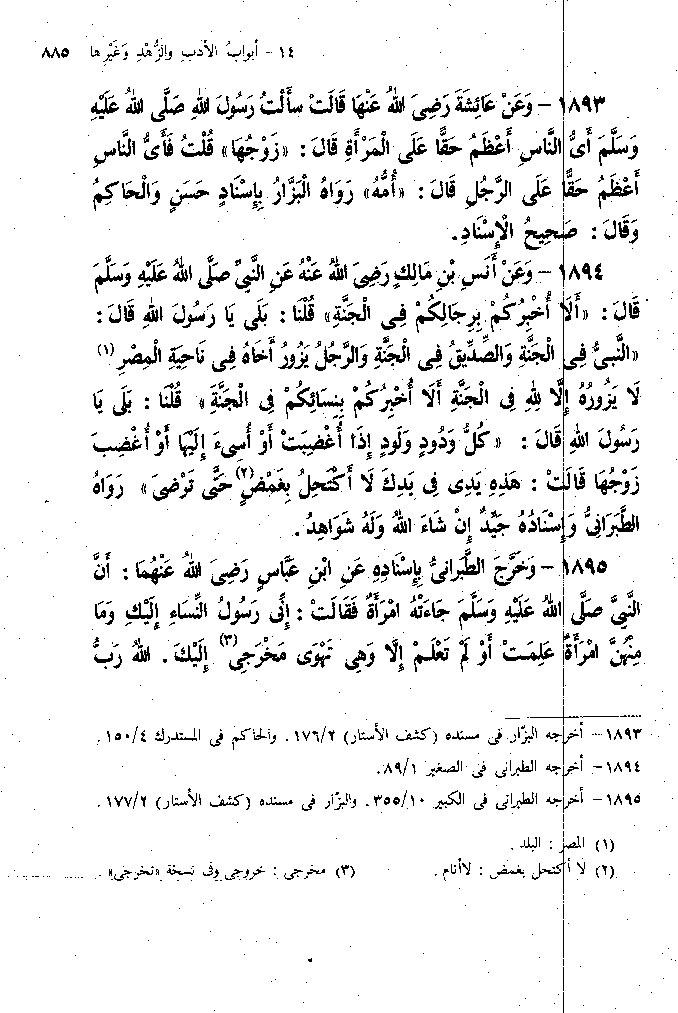 ١٤ - أبوابُ الأدبِ والزُّهْدِ وَغَيْرِها ٨٨٥
١٨٩٣ - وَعَنْ عَائِشَةَ رَضِيَ اللهُ عَنْهَا قَالَتْ سَأَلْتُ رَسُولَ اللهِ صَلَّى اللهُ عَلَيْهِ
وَسَلَّمَ أَىُّ النَّاسِ أَعْظَمُ حَقًّا عَلَى الْمَرْأَةِ قَالَ : «زَوْجُهَا» قُلْتُ فَأَىُّ النَّاسِ
أَعْظَمُ حَقًّا عَلَى الرَّجُلِ قَالَ : «أُمُّهُ» رَوَاهُ الْبَزَّارُ بِإِسْنَادٍ حَسَنٍ وَالْحَاكِمُ
وَقَالَ : صَحِيحُ الْإِسْنَادِ.
١٨٩٤ - وَعَنْ أَنَسِ بْنِ مَالِكٍ رَضِيَ اللهُ عَنْهُ عَنِ النَّبِيِّ صَلَّى اللهُ عَلَيْهِ وَسَلَّمَ
قَالَ : «أَلَا أُخْبِرُكُمْ بِرِجَالِكُمْ فِى الْجَنَّةِ» قُلْنَا : بَلَى يَا رَسُولَ اللهِ قَالَ :
«النَّبِىُّ فِى الْجَنَّةِ وَالصِّدِّيقُ فِى الْجَنَّةِ وَالرَّجُلُ يَزُورُ أَخَاهُ فِى نَاحِيَةِ الْمِصْرِ (١)
لَا يَزُورُهُ إِلَّا لِلهِ فِى الْجَنَّةِ أَلَا أُخْبِرُكُمْ بِنِسَائِكُمْ فِى الْجَنَّةِ» قُلْنَا : بَلَى يَا
رَسُولَ اللهِ قَالَ : «كُلُّ وَدُودٍ وَلُودٍ إِذَا أُغْضِبَتْ أَوْ أُسِىءَ إِلَيْهَا أَوْ أُغْضِبَ
زَوْجُهَا قَالَتْ : هَذِهِ يَدِى فِى يَدِكَ لَا أَكْتَحِلُ بِغَمْضٍ (٢) حَتَّى تَرْضَى» رَوَاهُ
الطَّبَرَانِىُّ وَإِسْنَادُهُ جَيِّدٌ إِنْ شَاءَ اللهُ وَلَهُ شَوَاهِدُ.
١٨٩٥ - وَخَرَّجَ الطَّبَرَانِىُّ بِإِسْنَادِهِ عَنِ ابْنِ عَبَّاسٍ رَضِيَ اللهُ عَنْهُمَا : أَنَّ
النَّبِىَّ صَلَّى اللهُ عَلَيْهِ وَسَلَّمَ جَاءَتْهُ امْرَأَةٌ فَقَالَتْ : إِنِّى رَسُولُ النِّسَاءِ إِلَيْكَ وَمَا
مِنْهُنَّ امْرَأَةٌ عَلِمَتْ أَوْ لَمْ تَعْلَمْ إِلَّا وَهِىَ تَهْوَى مَخْرَجِى (٣) إِلَيْكَ. اللهُ رَبُّ
١٨٩٣ - أخرجه البزّار فى مسنده (كشف الأستار) ١٧٦/٢. والحاكم فى المستدرك ١٥٠/٤.
١٨٩٤ - أخرجه الطبرانى فى الصغير ٨٩/١.
١٨٩٥ - أخرجه الطبرانى فى الكبير ٣٥٥/١٠. والبزّار فى مسنده (كشف الأستار) ١٧٧/٢.
(١) المصر : البلد.
(٢) لا أكتحل بغمض : لاأنام. (٣) مخرجى : خروجى وفى نسخة «تخرجى».